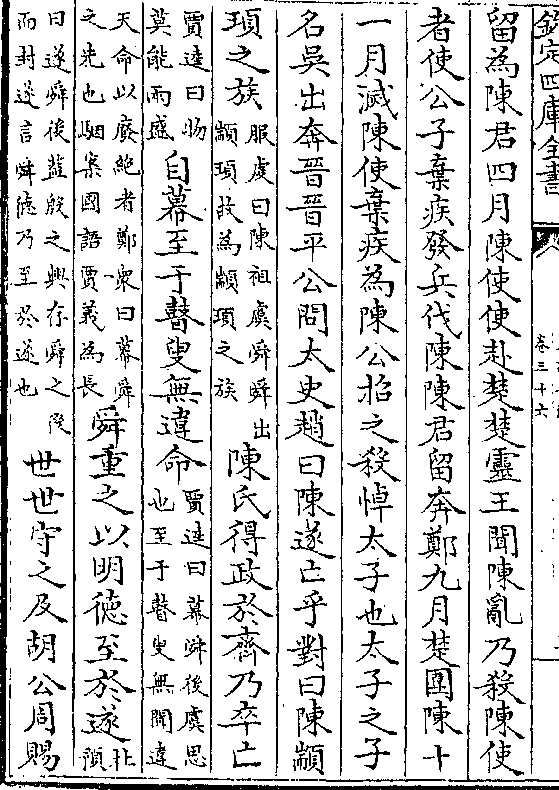 欽定四庫全書
卷三十六
留為陳君四月陳使使赴楚楚靈王聞陳亂乃殺陳使
者使公子棄疾發兵伐陳陳君留奔鄭九月楚圍陳十
一月滅陳使棄疾為陳公招之殺悼太子也太子之子
名吳出奔晉晉平公問太史趙曰陳遂亡乎對曰陳顓
頊之族服虔曰陳祖虞舜舜出顓頊故為顓頊之族陳氏得政於齊乃卒亡
賈逵曰物莫能兩盛自幕至于瞽叟無違命賈逵曰幕舜後虞思也至于瞽叟無聞違
天命以廢絕者鄭衆曰幕舜之先也駰案國語賈義為長舜重之以明德至於遂杜預
曰遂舜後蓋殷之興存舜之後而封遂言舜德乃至於遂也世世守之及胡公周賜